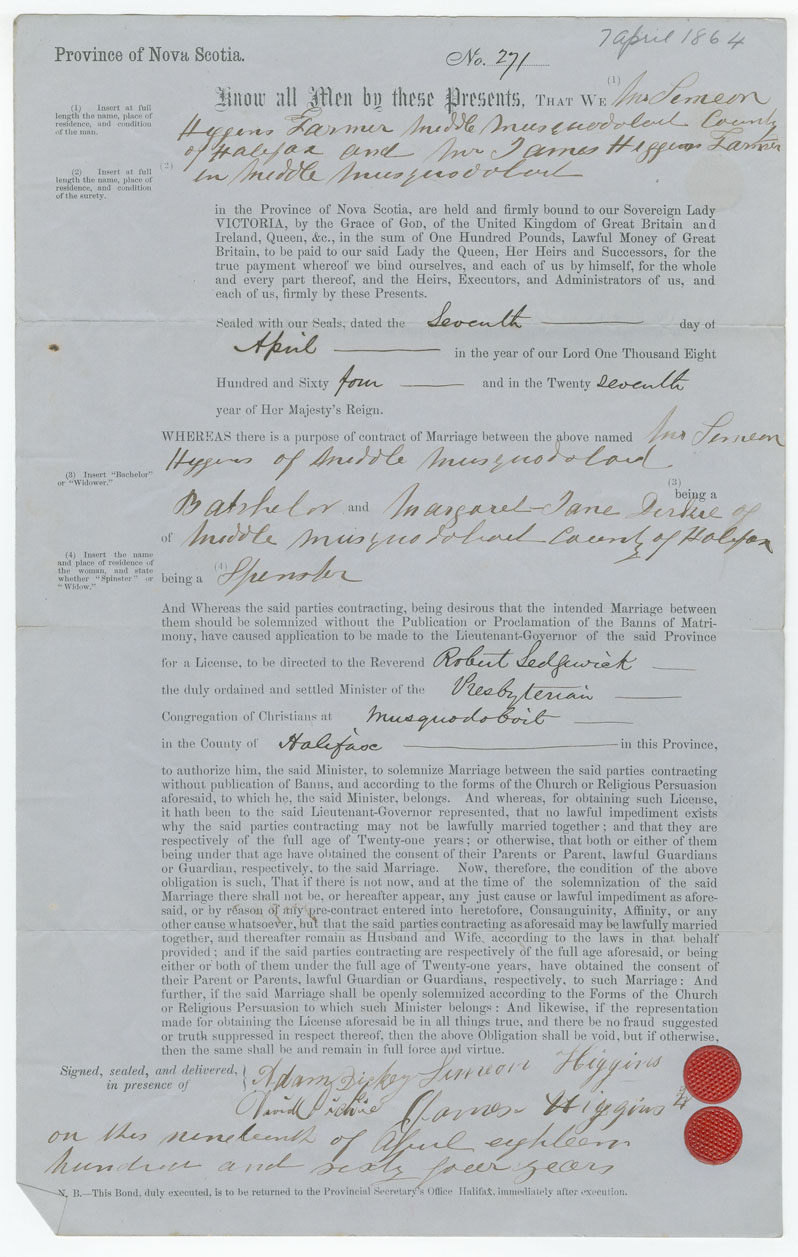 7 April 1864
Province of Nova Scotia.
No. 271
Know all Men by these Presents, THAT WE (1) Mr Simeon
(1) Insert at full
length the name, place of
residence, and condition
of the man.
Higgins Farmer Middle Musquodoboit County
of Halifax and Mr James Higgins Farmer
(2) in Middle Musquodoboit
(2) Insert at full
length the name, place of
residence, and condition
of the surety.
in the Province of Nova Scotia, are held and firmly bound to our Sovereign Lady
VICTORIA, by the Grace of GOD, of the United Kingdom of Great Britain and
Ireland, Queen, &c., in the sum of One Hundred Pounds, Lawful Money of Great
Britain, to be paid to our said Lady the Queen, Her Heirs and Successors, for the
true payment whereof we bind ourselves, and each of us by himself, for the whole
and every part thereof, and the Heirs, Executors, and Administrators of us, and
each of us, firmly by these Presents.
Sealed with our Seals, dated the Seventh day of
April in the year of our Lord One Thousand Eight
Hundred and Sixty four and in the Twenty seventh
year of Her Majesty's Reign.
WHEREAS there is a purpose of contract of Marriage between the above named Mr Simeon
Higgins of Middle Musquodoboid
(3) Insert "Bachelor"
or "Widower."
(3)
being a
Batshelor and Margaret Jane of
of Middle Musquodoboit County of Halifax
(4) Insert the name
and place of residence of
the woman, and state
whether "Spinster" or
"Widow."
being a (4) Spenster
And Whereas the said parties contracting, being desirous that the intended Marriage between
them should be solemnized without the Publication or Proclamation of the Banns of Matri-
mony, have caused application to be made to the Lieutenant-Governor of the said Province
for a License, to be directed to the Reverend Robert Sedgwick
the duly ordained and settled Minister of the Presbyterian
Congregation of Christians at Musquodoboit
in the County of Halifax in this Province,
to authorize him, the said Minister, to solemnize Marriage between the said parties contracting
without publication of Banns, and according to the forms of the Church or Religious Persuasion
aforesaid, to which he, the said Minister, belongs. And whereas, for obtaining such License,
it hath been to the said Lieutenant-Governor represented, that no lawful impediment exists
why the said parties contracting may not be lawfully married together; and that they are
respectively of the full age of Twenty-one years; or otherwise, that both or either of them
being under that age have obtained the consent of their Parents or Parent, lawful Guardians
or Guardian, respectively, to the said Marriage. Now, therefore, the condition of the above
obligation is such, That if there is not now, and at the time of the solemnization of the said
Marriage there shall not be, or hereafter appear, any just cause or lawful impediment as afore-
said, or by reason of any pre-contract entered into heretofore, Consanguinity, Affinity, or any
other cause whatsoever, but that the said parties contracting as aforesaid may be lawfully married
together, and thereafter remain as Husband and Wife, according to the laws in that behalf
provided; and if the said parties contracting are respectively of the full age aforesaid, or being
either or both of them under the full age of Twenty-one years, have obtained the consent of
their Parent or Parents, lawful Guardian or Guardians, respectively, to such Marriage: And
further, if the said Marriage shall be openly solemnized according to the Forms of the Church
or Religious Persuasion to which such Minister belongs: And likewise, if the representation
made for obtaining the License aforesaid be in all things true, and there be no fraud suggested
or truth suppressed in respect thereof, then the above Obligation shall be void, but if otherwise,
then the same shall be and remain in full force and virtue.
Signed, sealed, and delivered,
in presence of
Adam Dickey Simeon Higgins
David James Higgins
on this nineteenth of April eighteen
hundred and sixty four years
N. B.—This Bond, duly executed, is to be returned to the Provincial Secretary's Office Halifax, immediately after execution.